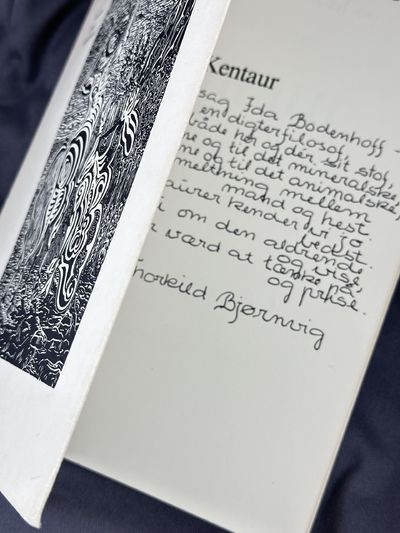 Kentaur
sag Ida Bodenhoff -
en digterfilosof,
både her og dér sit stof,
ne og til det mineralske,
ne og til det animalske,
meltning mellem
mand og hest.
aurer kender vi jo
bedst.
i om den aldrende
og vise
r værd at tænke på,
og prise.
Thorkild Bjørnvig